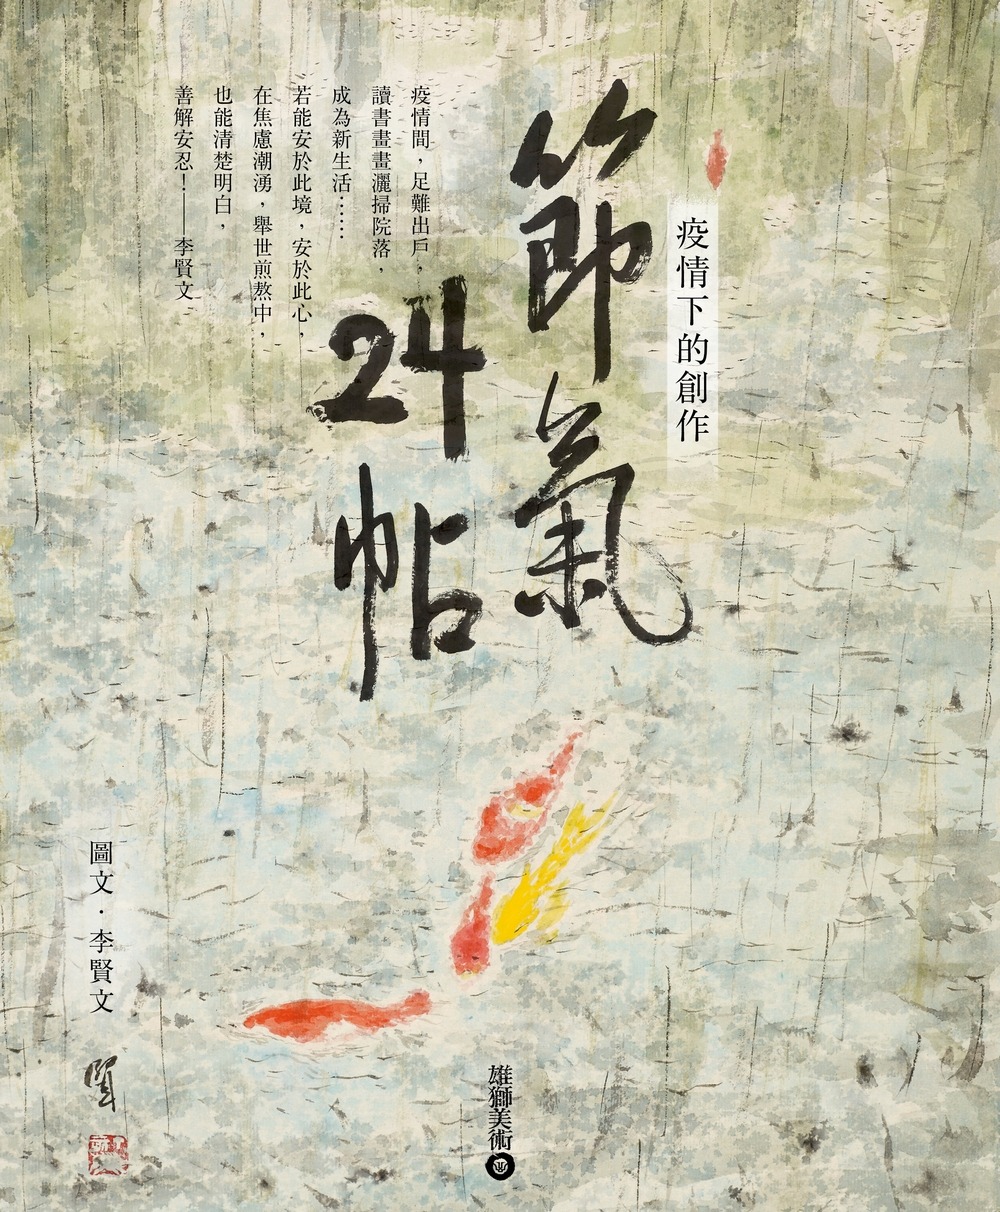 疫情下的創作
節氣
24帖
疫情間，足難出戶，
讀書畫畫灑掃院落，
成為新生活……
若能安於此境，安於此心，
在焦慮潮湧，舉世煎熬中，
也能清楚明白，
善解安忍！——李賢文
圖文．李賢文
賢
雄獅美術